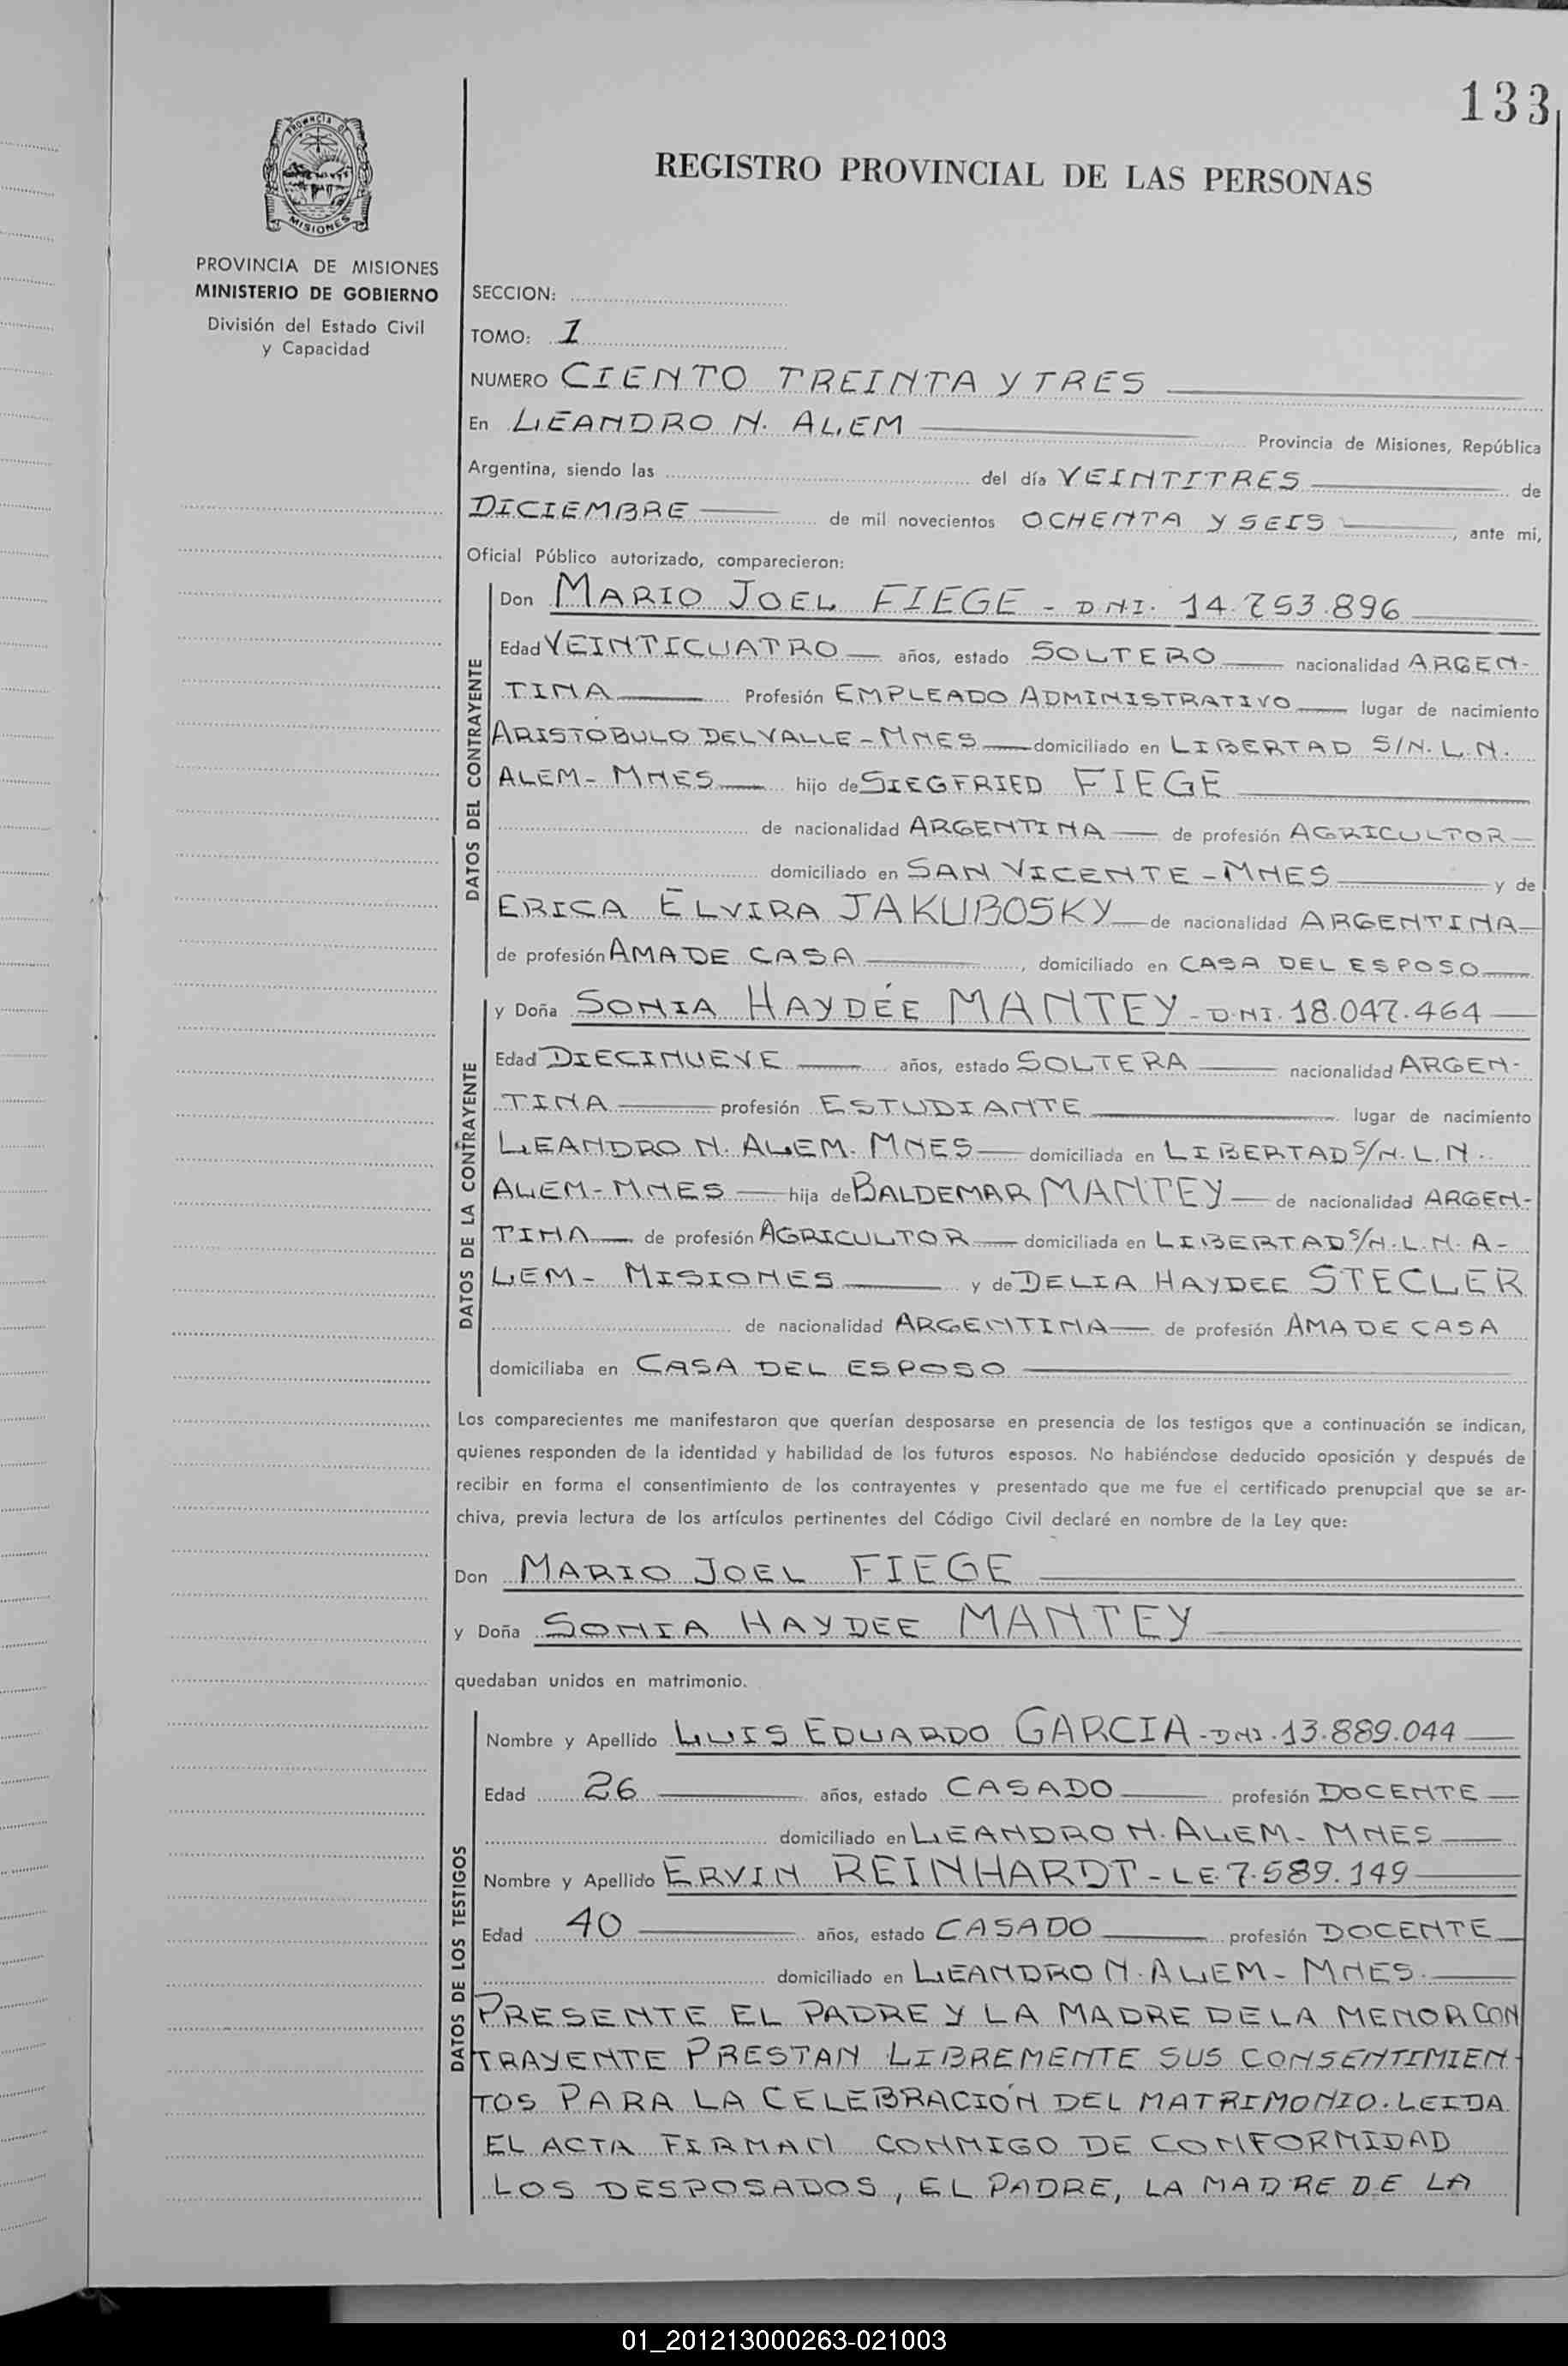 133
PROVINCIA DE
MISIONES
REGISTRO PROVINCIAL DE LAS PERSONAS
PROVINCIA DE MISIONES
MINISTERIO DE GOBIERNO
División del Estado Civil
y Capacidad
SECCION:
TOMO: 1
NUMERO CIENTO TREINTA Y TRES
En LEANDRO N. ALEM Provincia de Misiones, República
Argentina, siendo las del día VEINTITRES de
DICIEMBRE de mil novecientos OCHENTA Y SEIS, ante mi,
Oficial Público autorizado, comparecieron:
DATOS DEL CONTRAYENTE
Don MARIO JOEL FIEGE - DNI. 14.753.896
Edad VEINTICUATRO años, estado SOLTERO nacionalidad ARGEN-
TINA Profesión EMPLEADO ADMINISTRATIVO lugar de nacimiento
ARISTÓBULO DEL VALLE - MNES domiciliado en LIBERTAD S/N. L.N.
ALEM - MNES hijo de SIEGFRIED FIEGE
de nacionalidad ARGENTINA de profesión AGRICULTOR
domiciliado en SAN VICENTE - MNES y de
ERICA ELVIRA JAKUBOSKY de nacionalidad ARGENTINA
de profesión AMA DE CASA, domiciliado en CASA DEL ESPOSO
DATOS DE LA CONTRAYENTE
y Doña SONIA HAYDÉE MANTEY - D.NI. 18.047.464
Edad DIECINUEVE años, estado SOLTERA nacionalidad ARGEN-
TINA profesión ESTUDIANTE lugar de nacimiento
LEANDRO N. ALEM. MNES domiciliada en LIBERTAD S/N. L.N.
ALEM - MNES hija de BALDEMAR MANTEY de nacionalidad ARGEN-
TINA de profesión AGRICULTOR domiciliada en LIBERTAD S/N. L.N. A-
LEM - MISIONES y de DELIA HAYDEE STECLER
de nacionalidad ARGENTINA de profesión AMA DE CASA
domiciliaba en CASA DEL ESPOSO
Los comparecientes me manifestaron que querían desposarse en presencia de los testigos que a continuación se indican,
quienes responden de la identidad y habilidad de los futuros esposos. No habiéndose deducido oposición y después de
recibir en forma el consentimiento de los contrayentes y presentado que me fue el certificado prenupcial que se ar-
chiva, previa lectura de los artículos pertinentes del Código Civil declaré en nombre de la Ley que:
Don MARIO JOEL FIEGE
y Doña SONIA HAYDEE MANTEY
quedaban unidos en matrimonio.
DATOS DE LOS TESTIGOS
Nombre y Apellido LUIS EDUARDO GARCIA - DNI. 13.889.044
Edad 26 años, estado CASADO profesión DOCENTE
domiciliado en LEANDRO N. ALEM - MNES
Nombre y Apellido ERVIN REINHARDT - LE. 7.589.149
Edad 40 años, estado CASADO profesión DOCENTE
domiciliado en LEANDRO N. ALEM - MNES.
PRESENTE EL PADRE Y LA MADRE DE LA MENOR CON
TRAYENTE PRESTAN LIBREMENTE SUS CONSENTIMIEN-
TOS PARA LA CELEBRACIÓN DEL MATRIMONIO. LEIDA
EL ACTA FIRMAN CONMIGO DE CONFORMIDAD
LOS DESPOSADOS, EL PADRE, LA MADRE DE LA
01_201213000263-021003